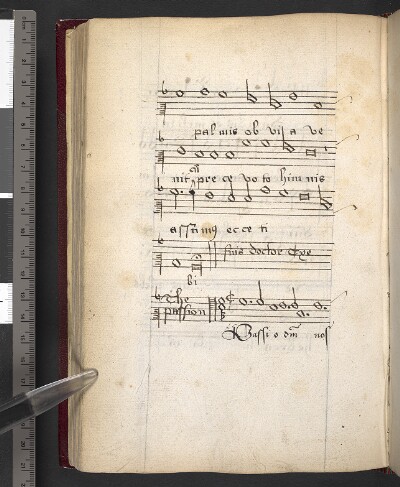 pal mis ob vi a ve
nit pre ce vo to him nis
assumus ecce ti
finis doctor Coxe
bi
The
passion
Passi o dm nos